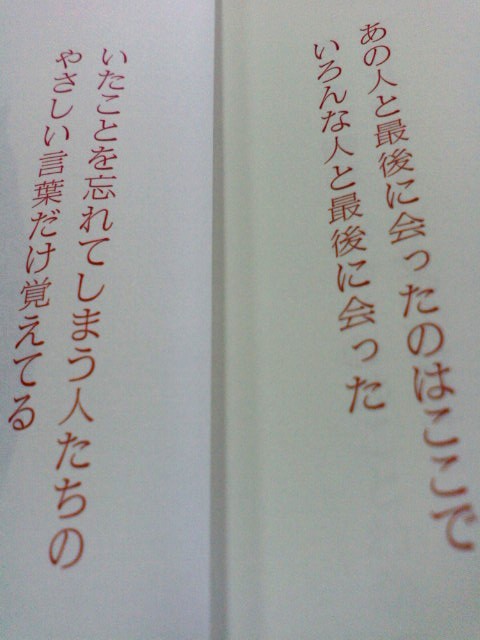 あの人と最後に会ったのはここで
いろんな人と最後に会った
いたことを忘れてしまう人たちの
やさしい言葉だけ覚えてる